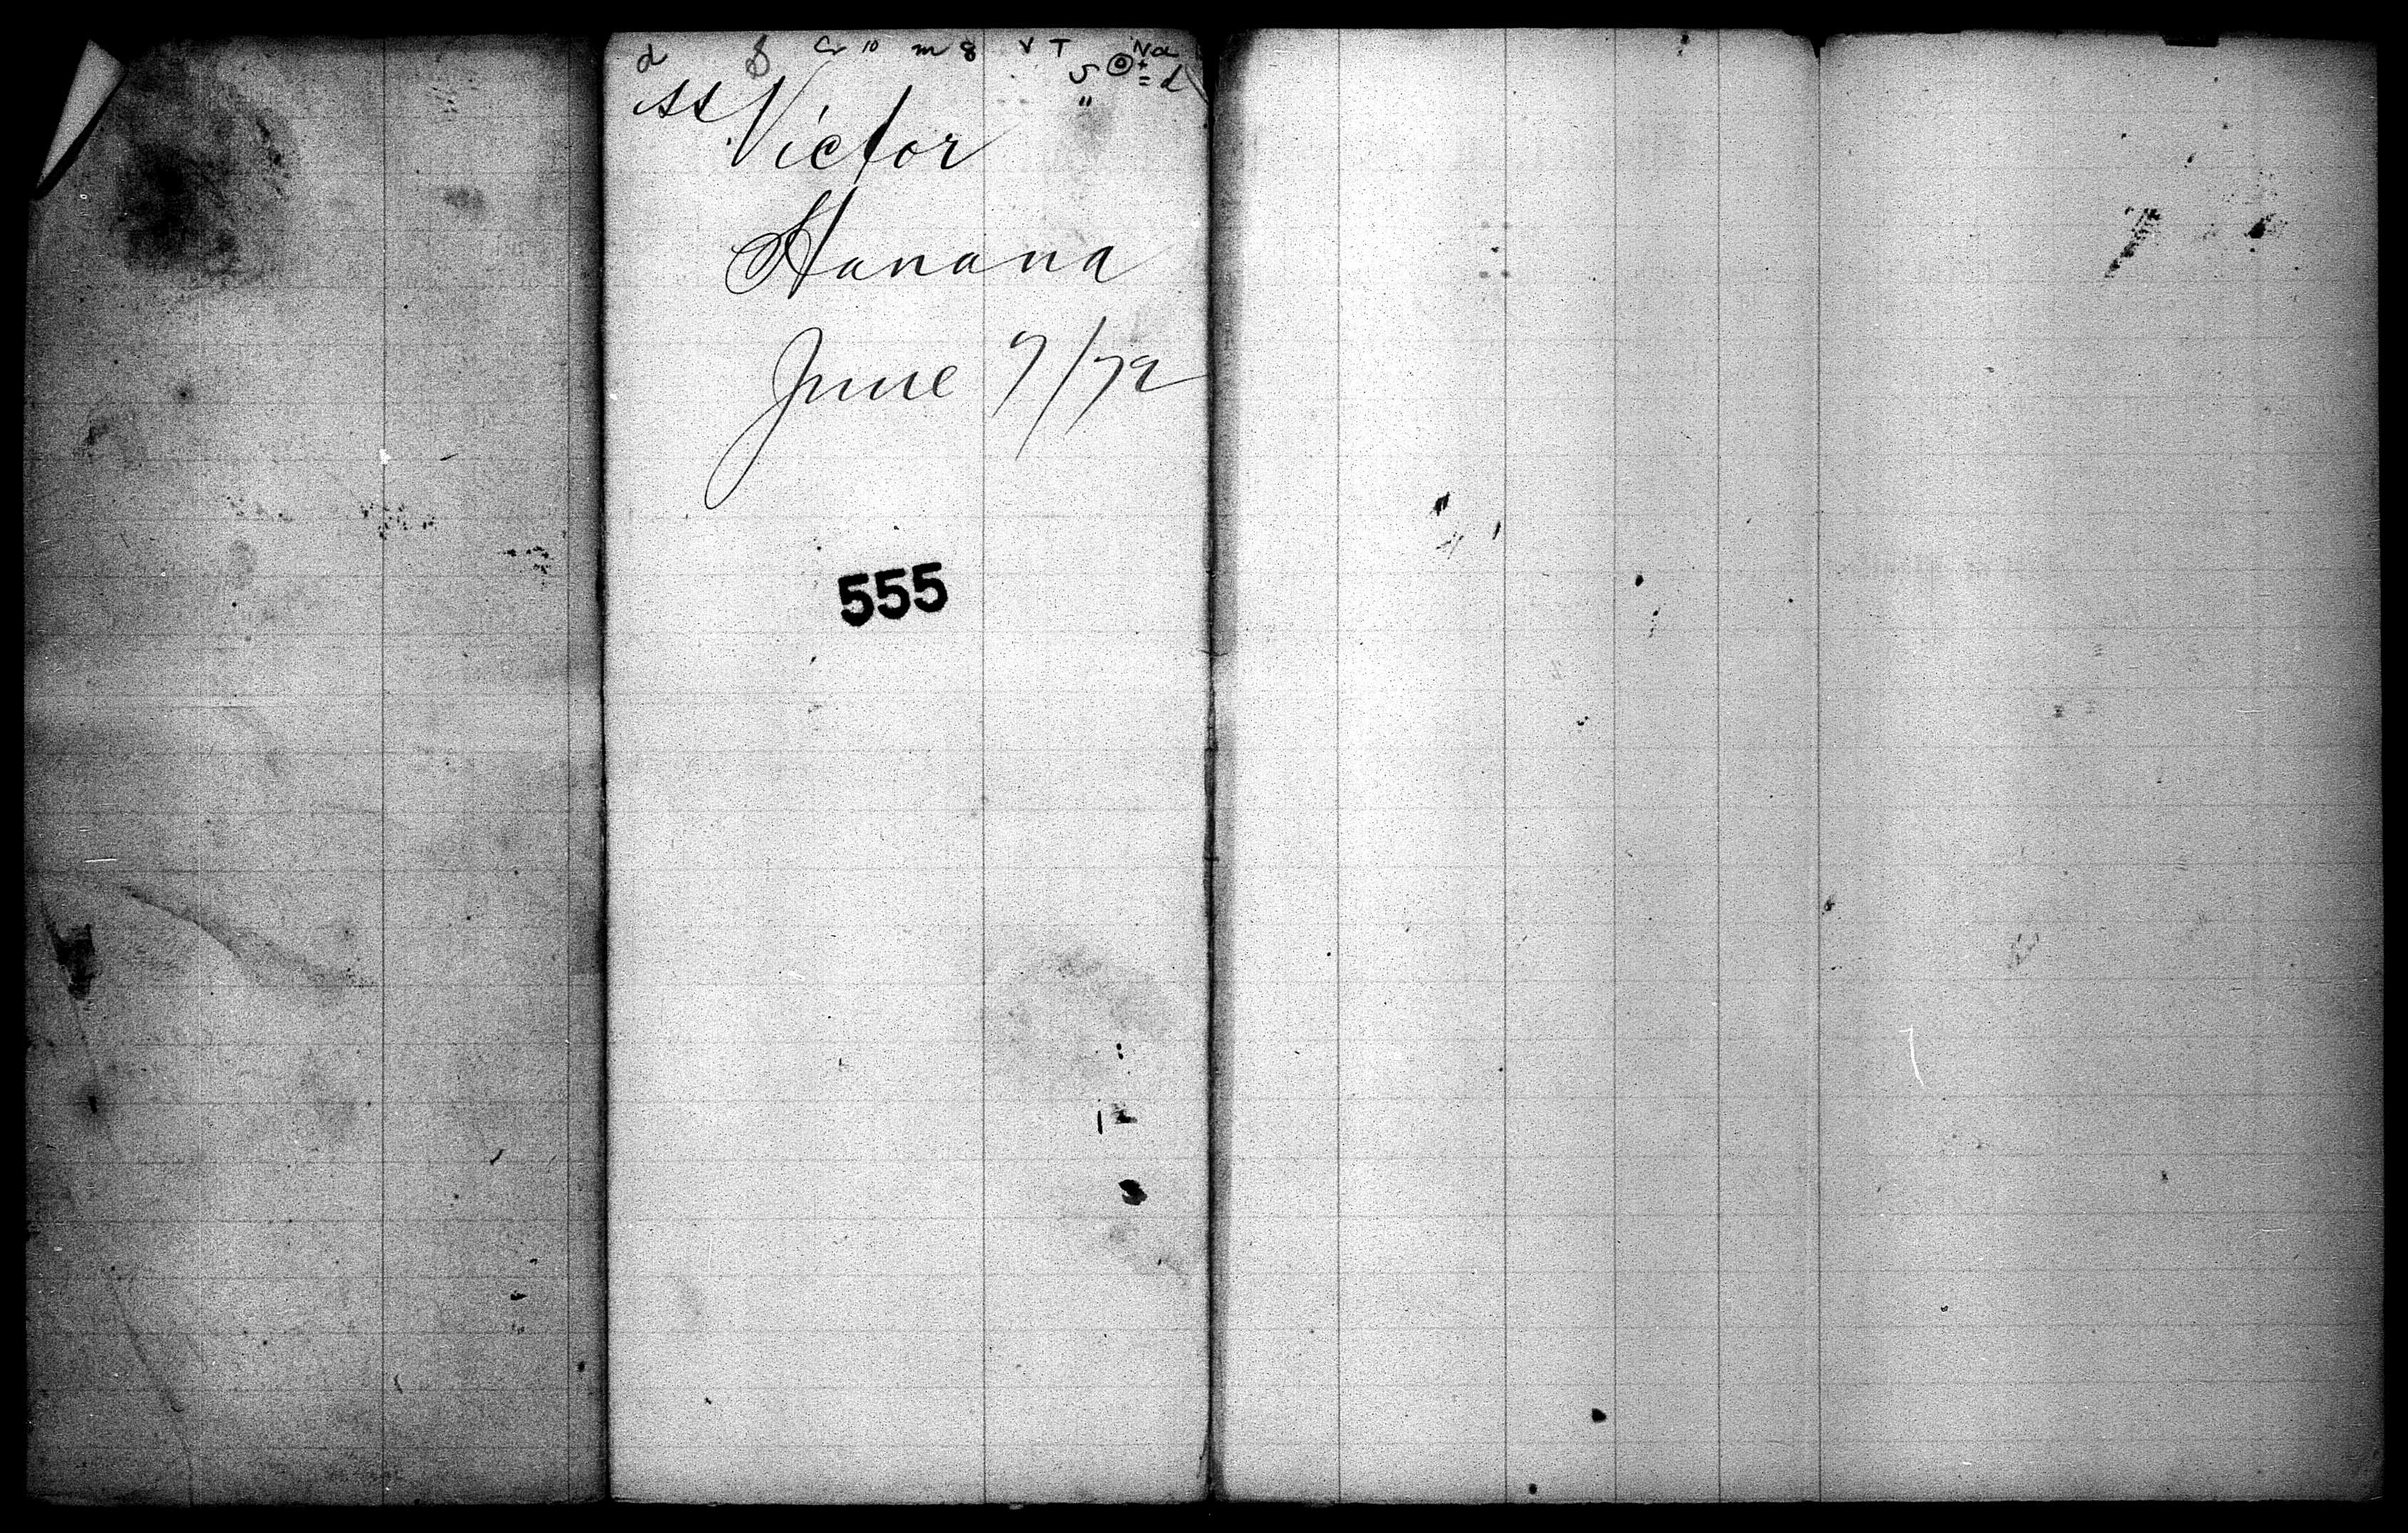 d 8 Cr 10 m 8 V T Na
SS Victor
Havana
June 7/72
555